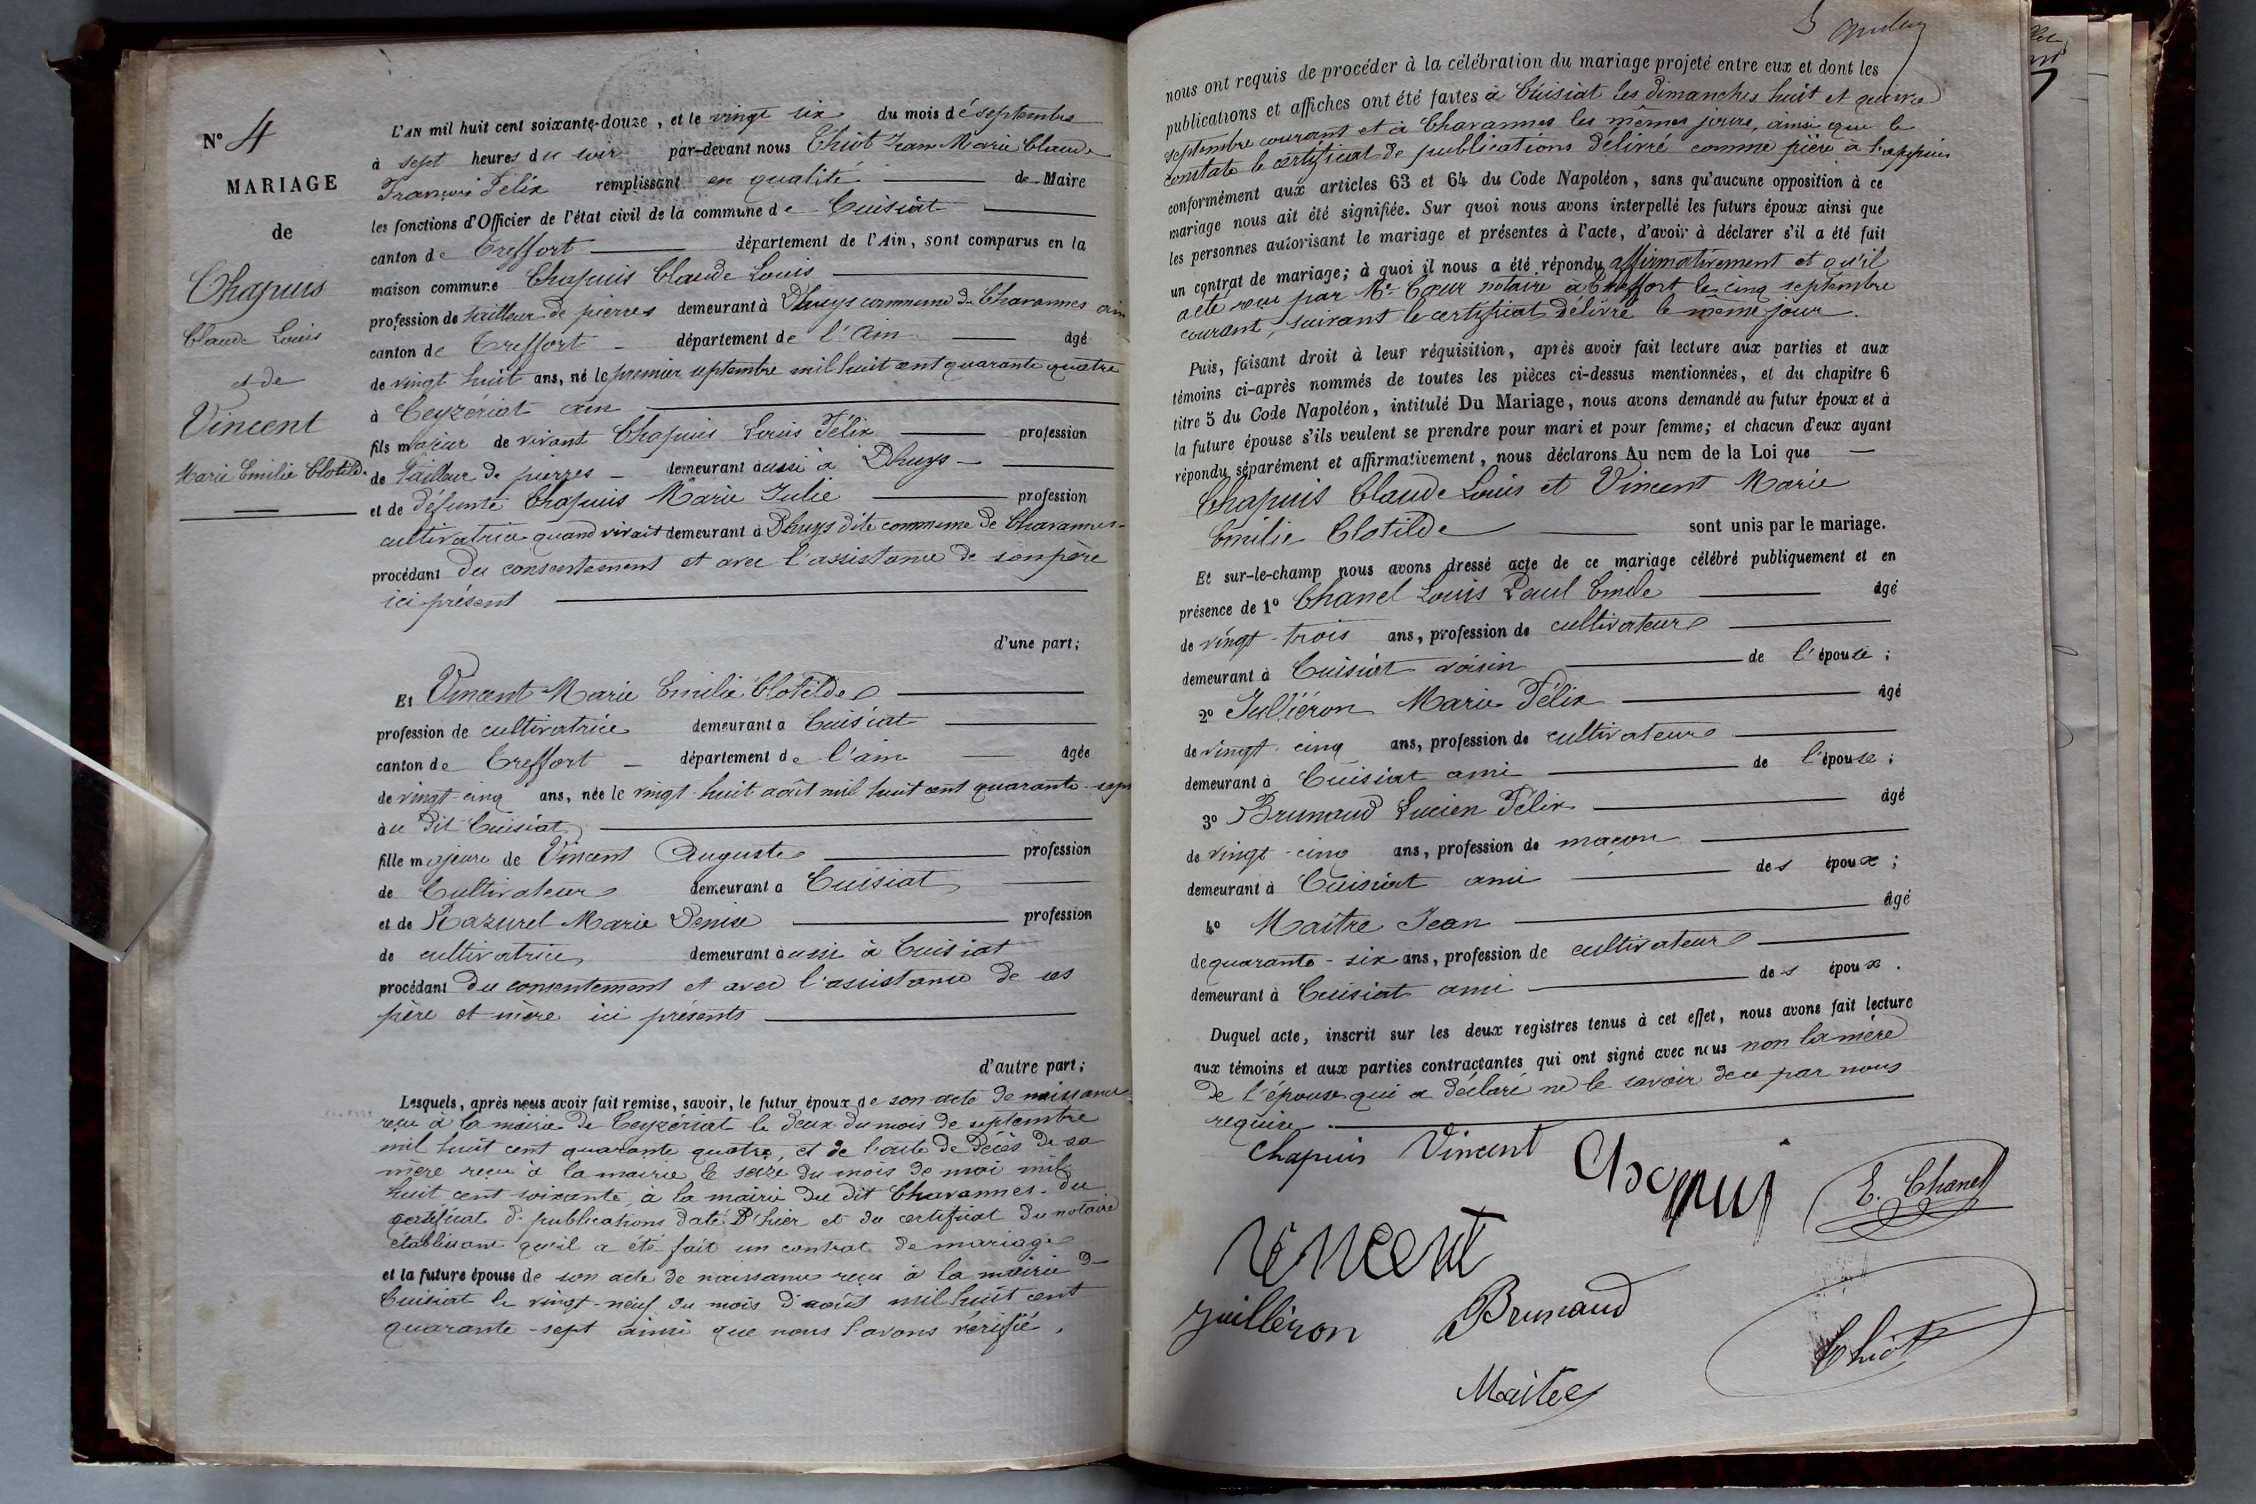 N° 4
MARIAGE
de
Chapuis
Claude Louis
et de
Vincent
Marie Emilie Clotilde
L'AN mil huit cent soixante-douze, et le vingt six du mois de septembre
à sept heures du soir par-devant nous Thiot Jean Marie Claude
François Félix remplissant en qualité de Maire
les fonctions d'Officier de l'état civil de la commune de Cuisiat
canton de Treffort département de l'Ain, sont comparus en la
maison commune Chapuis Claude Louis
profession de tailleur de pierres demeurant à Dhuys commune de Chavannes ain
canton de Treffort département de l'Ain âgé
de vingt huit ans, né le premier septembre mil huit cent quarante quatre
à Ceyzériat ain
fils majeur de vivant Chapuis Louis Félix profession
de tailleur de pierres demeurant aussi à Dhuys
et de défunte Chapuis Marie Julie profession
cultivatrice quand vivait demeurant à Dhuys dite commune de Chavannes
procédant du consentement et avec l'assistance de son père
ici présent
d'une part;
Et Vincent Marie Emilie Clotilde
profession de cultivatrice demeurant à Cuisiat
canton de Treffort département de l'ain âgée
de vingt-cinq ans, née le vingt-huit août mil huit cent quarante-sept
au dit Cuisiat
fille majeure de Vincent Auguste profession
de Cultivateur demeurant à Cuisiat
et de Razurel Marie Denise profession
de cultivatrice demeurant aussi à Cuisiat
procédant du consentement et avec l'assistance de ses
père et mère ici présents
d'autre part;
Lesquels, après nous avoir fait remise, savoir, le futur époux de son acte de naissance
reçu à la mairie de Ceyzériat le deux du mois de septembre
mil huit cent quarante quatre, et de l'acte de décès de sa
mère reçu à la mairie le seize du mois de mai mil
huit cent soixante à la mairie du dit Chavannes. du
certificat de publications daté d'hier et du certificat du notaire
établissant qu'il a été fait un contrat de mariage
et la future épouse de son acte de naissance reçu à la mairie de
Cuisiat le vingt-neuf du mois d'août mil huit cent
quarante-sept ainsi que nous l'avons vérifié.
nous ont requis de procéder à la célébration du mariage projeté entre eux et dont les
publications et affiches ont été faites à Cuisiat les dimanches huit et quinze
septembre courant et à Chavannes les mêmes jours, ainsi que le
constate le certificat de publications délivré comme pièce à l'appui
conformément aux articles 63 et 64 du Code Napoléon, sans qu'aucune opposition à ce
mariage nous ait été signifiée. Sur quoi nous avons interpellé les futurs époux ainsi que
les personnes autorisant le mariage et présentes à l'acte, d'avoir à déclarer s'il a été fait
un contrat de mariage; à quoi il nous a été répondu affirmativement et qu'il
a été reçu par Me Cœur notaire à Treffort le cinq septembre
courant, suivant le certificat délivré le même jour.
Puis, faisant droit à leur réquisition, après avoir fait lecture aux parties et aux
témoins ci-après nommés de toutes les pièces ci-dessus mentionnées, et du chapitre 6
titre 5 du Code Napoléon, intitulé Du Mariage, nous avons demandé au futur époux et à
la future épouse s'ils veulent se prendre pour mari et pour femme; et chacun d'eux ayant
répondu séparément et affirmativement, nous déclarons Au nom de la Loi que
Chapuis Claude Louis et Vincent Marie
Emilie Clotilde sont unis par le mariage.
Et sur-le-champ nous avons dressé acte de ce mariage célébré publiquement et en
présence de 1° Chanel Louis Paul Emile âgé
de vingt-trois ans, profession de cultivateur
demeurant à Cuisiat voisin de l'épouse;
2° Julléron Marie Félix âgé
de vingt-cinq ans, profession de cultivateur
demeurant à Cuisiat ami de l'épouse;
3° Brunaud Lucien Félix âgé
de vingt-cinq ans, profession de maçon
demeurant à Cuisiat ami des époux;
4° Maître Jean âgé
de quarante-six ans, profession de cultivateur
demeurant à Cuisiat ami des époux.
Duquel acte, inscrit sur les deux registres tenus à cet effet, nous avons fait lecture
aux témoins et aux parties contractantes qui ont signé avec nous non la mère
de l'épouse qui a déclaré ne le savoir de ce par nous
requise
Chapuis Vincent Chapuis E. Chanel
Vincent
Juilléron Brunaud Thiot
Maitre